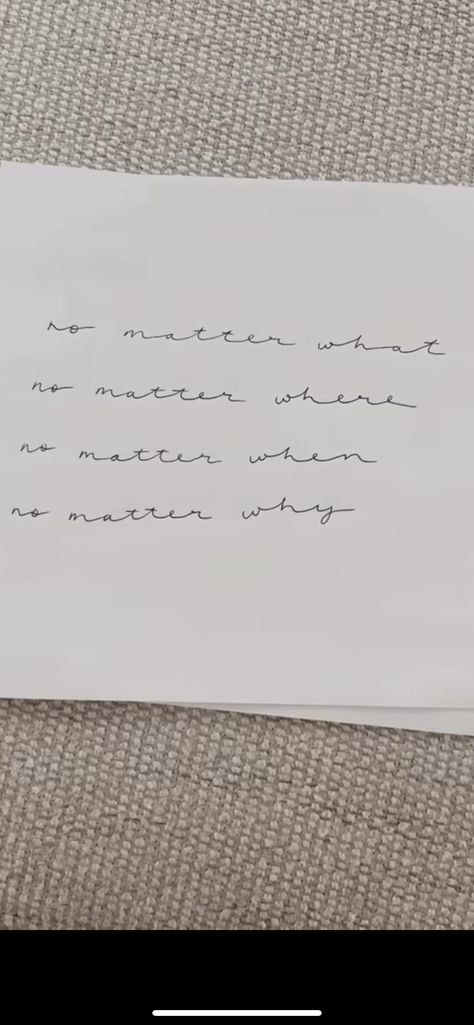 no matter what
no matter where
no matter when
no matter why